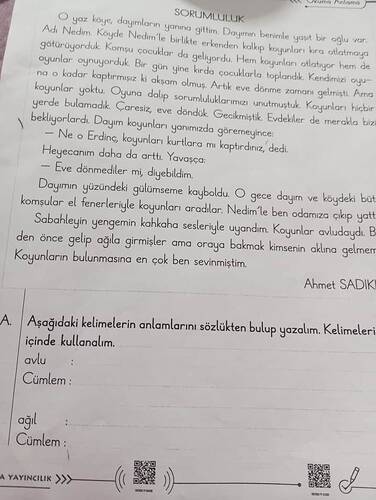 Okuma Anlama
SORUMLULUK
O yaz köye, dayımların yanına gittim. Dayımın benimle yaşıt bir oğlu var.
Adı Nedim. Köyde Nedim'le birlikte erkenden kalkıp koyunları kıra otlatmaya
götürüyorduk. Komşu çocuklar da geliyordu. Hem koyunları otlatıyor hem de
oyunlar oynuyorduk. Bir gün yine kırda çocuklarla toplandık. Kendimizi oyu-
na o kadar kaptırmışız ki akşam olmuş. Artık eve dönme zamanı gelmişti. Ama
koyunlar yoktu. Oyuna dalıp sorumluluklarımızı unutmuştuk. Koyunları hiçbir
yerde bulamadık. Çaresiz, eve döndük. Gecikmiştik. Evdekiler de merakla bizi
bekliyorlardı. Dayım koyunları yanımızda göremeyince:
— Ne o Erdinç, koyunları kurtlara mı kaptırdınız, dedi.
Heyecanım daha da arttı. Yavaşça:
— Eve dönmediler mi, diyebildim.
Dayımın yüzündeki gülümseme kayboldu. O gece dayım ve köydeki büt
komşular el fenerleriyle koyunları aradılar. Nedim'le ben odamıza çıkıp yatt
Sabahleyin yengemin kahkaha sesleriyle uyandım. Koyunlar avludaydı. B
den önce gelip ağıla girmişler ama oraya bakmak kimsenin aklına gelmem
Koyunların bulunmasına en çok ben sevinmiştim.
Ahmet SADIK
A. Aşağıdaki kelimelerin anlamlarını sözlükten bulup yazalım. Kelimeleri
içinde kullanalım.
avlu :
Cümlem :
ağıl :
Cümlem :
A YAYINCILIK